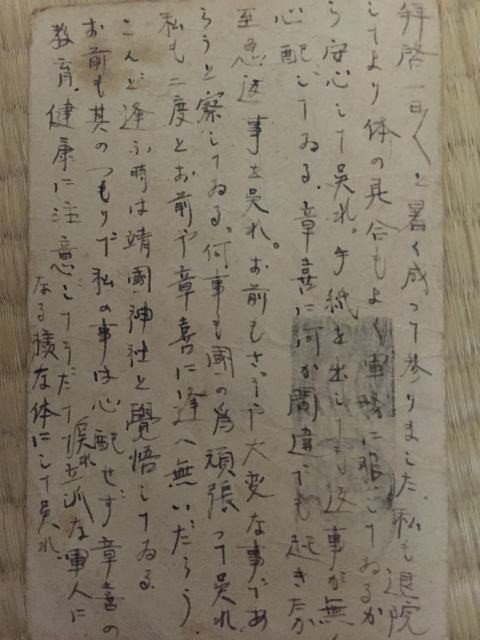 拝啓一日〱と暑く成って参りました、私も退院
してより体の具合もよく軍務に服してゐるか
ら安心して呉れ。手紙を出しても返事が無く
心配してゐる、章喜に何か間違でも起きたか
至急返事を呉れ。お前もさぞや大変な事であ
らうと察してゐる。何事も国の為頑張って呉れ
私も二度とお前や章喜に逢へ無いだらう
こんど逢ふ時は靖国神社と覺悟してゐる
お前も其のつもりで私の事は心配せず章喜の
教育、健康に注意してそだて立派な軍人に
なる様な体にして呉れ